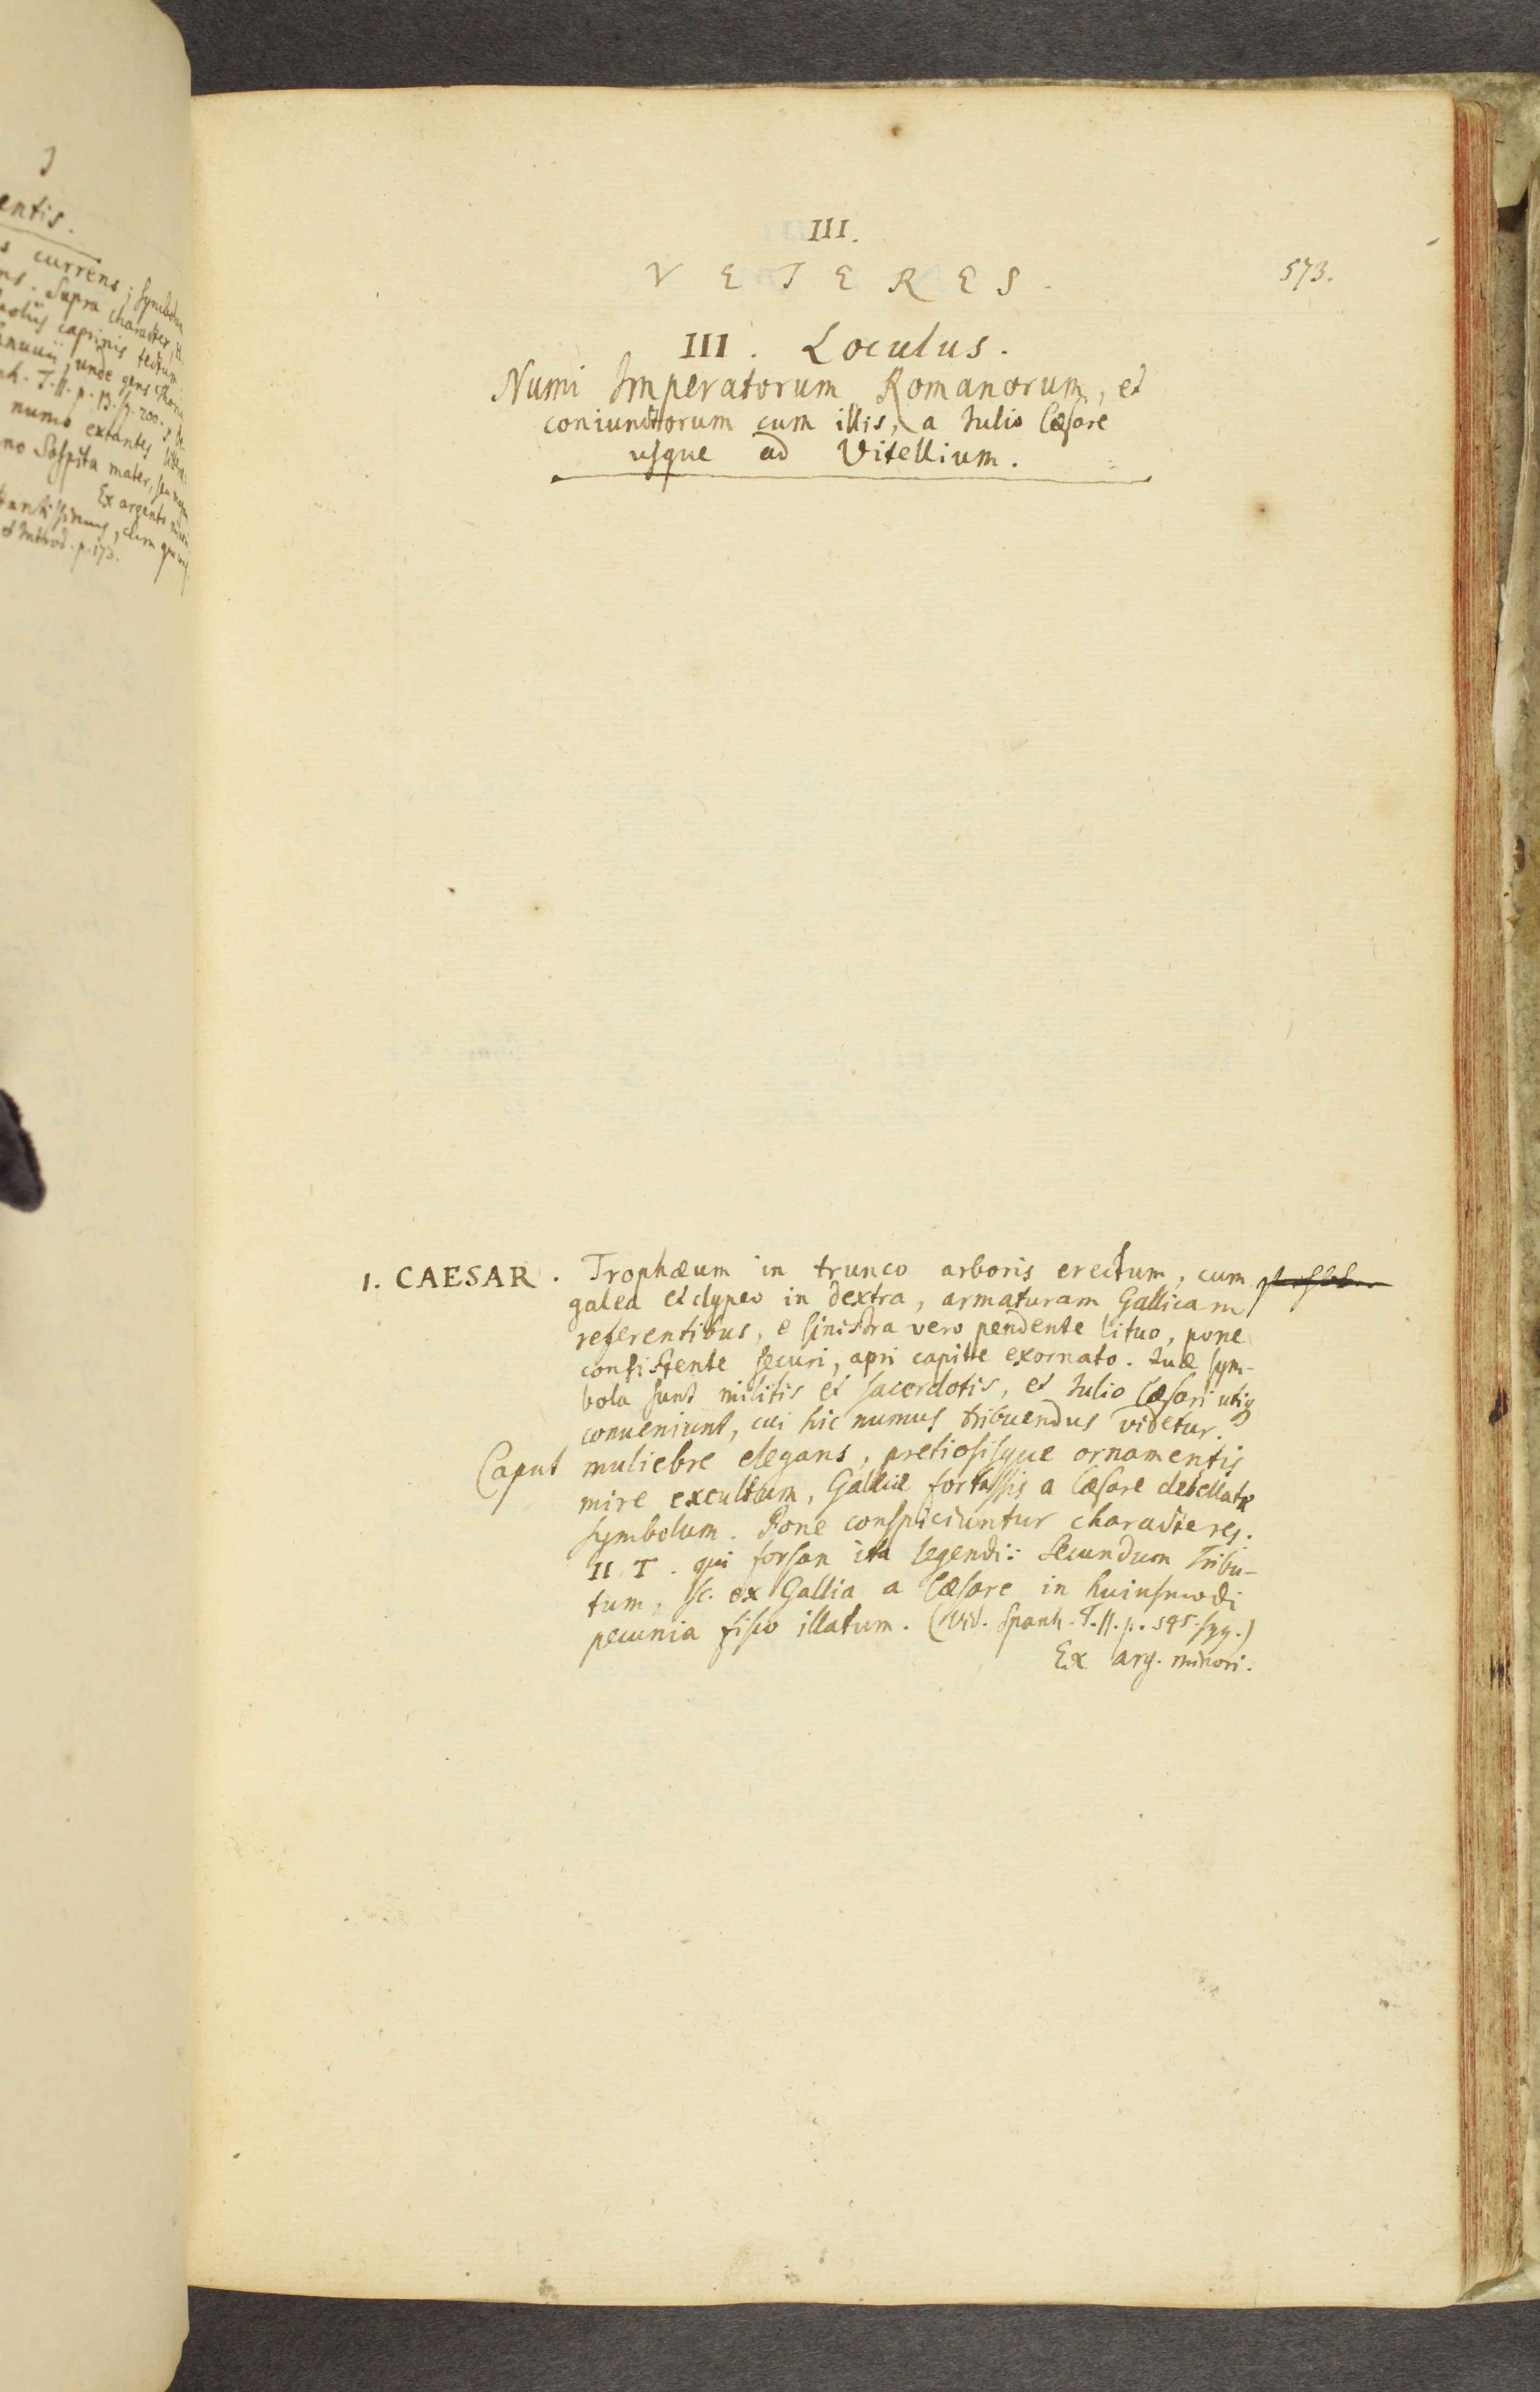 entis.
currens; Symbolum
Supra character,
caprinis tectum
unde gens
numo extantes
Sospita mater, seu
Ex argento
Introd. p. 173.
III.
VETERES. 573.
III. Loculus.
Numi Imperatorum Romanorum, et
coniunctorum cum illis, a Iulio Cæsare
usque ad Vitellium.
1. CAESAR. Trophæum in trunco arboris erectum, cum
galea et clypeo in dextra, armaturam Gallicam
referentibus, e sinistra vero pendente lituo, pone
consistente securi, apri capitte exornato. Quæ sym-
bola sunt militis et sacerdotis, et Iulio Cæsari utiq
conueniunt, cui hic numus tribuendus videtur.
Caput muliebre elegans, pretiosisque ornamentis
mire excultum, Galliæ fortassis a Cæsare debellatæ
symbolum. Pone conspiciuntur characteres.
II T. qui forsan ita legendi: Secundum Tribu-
tum, sc. ex Gallia a Cæsare in huiusmodi
pecunia fisco illatum. (Vid. Spanh. T. II. p. 595. sqq.)
Ex arg. minori.